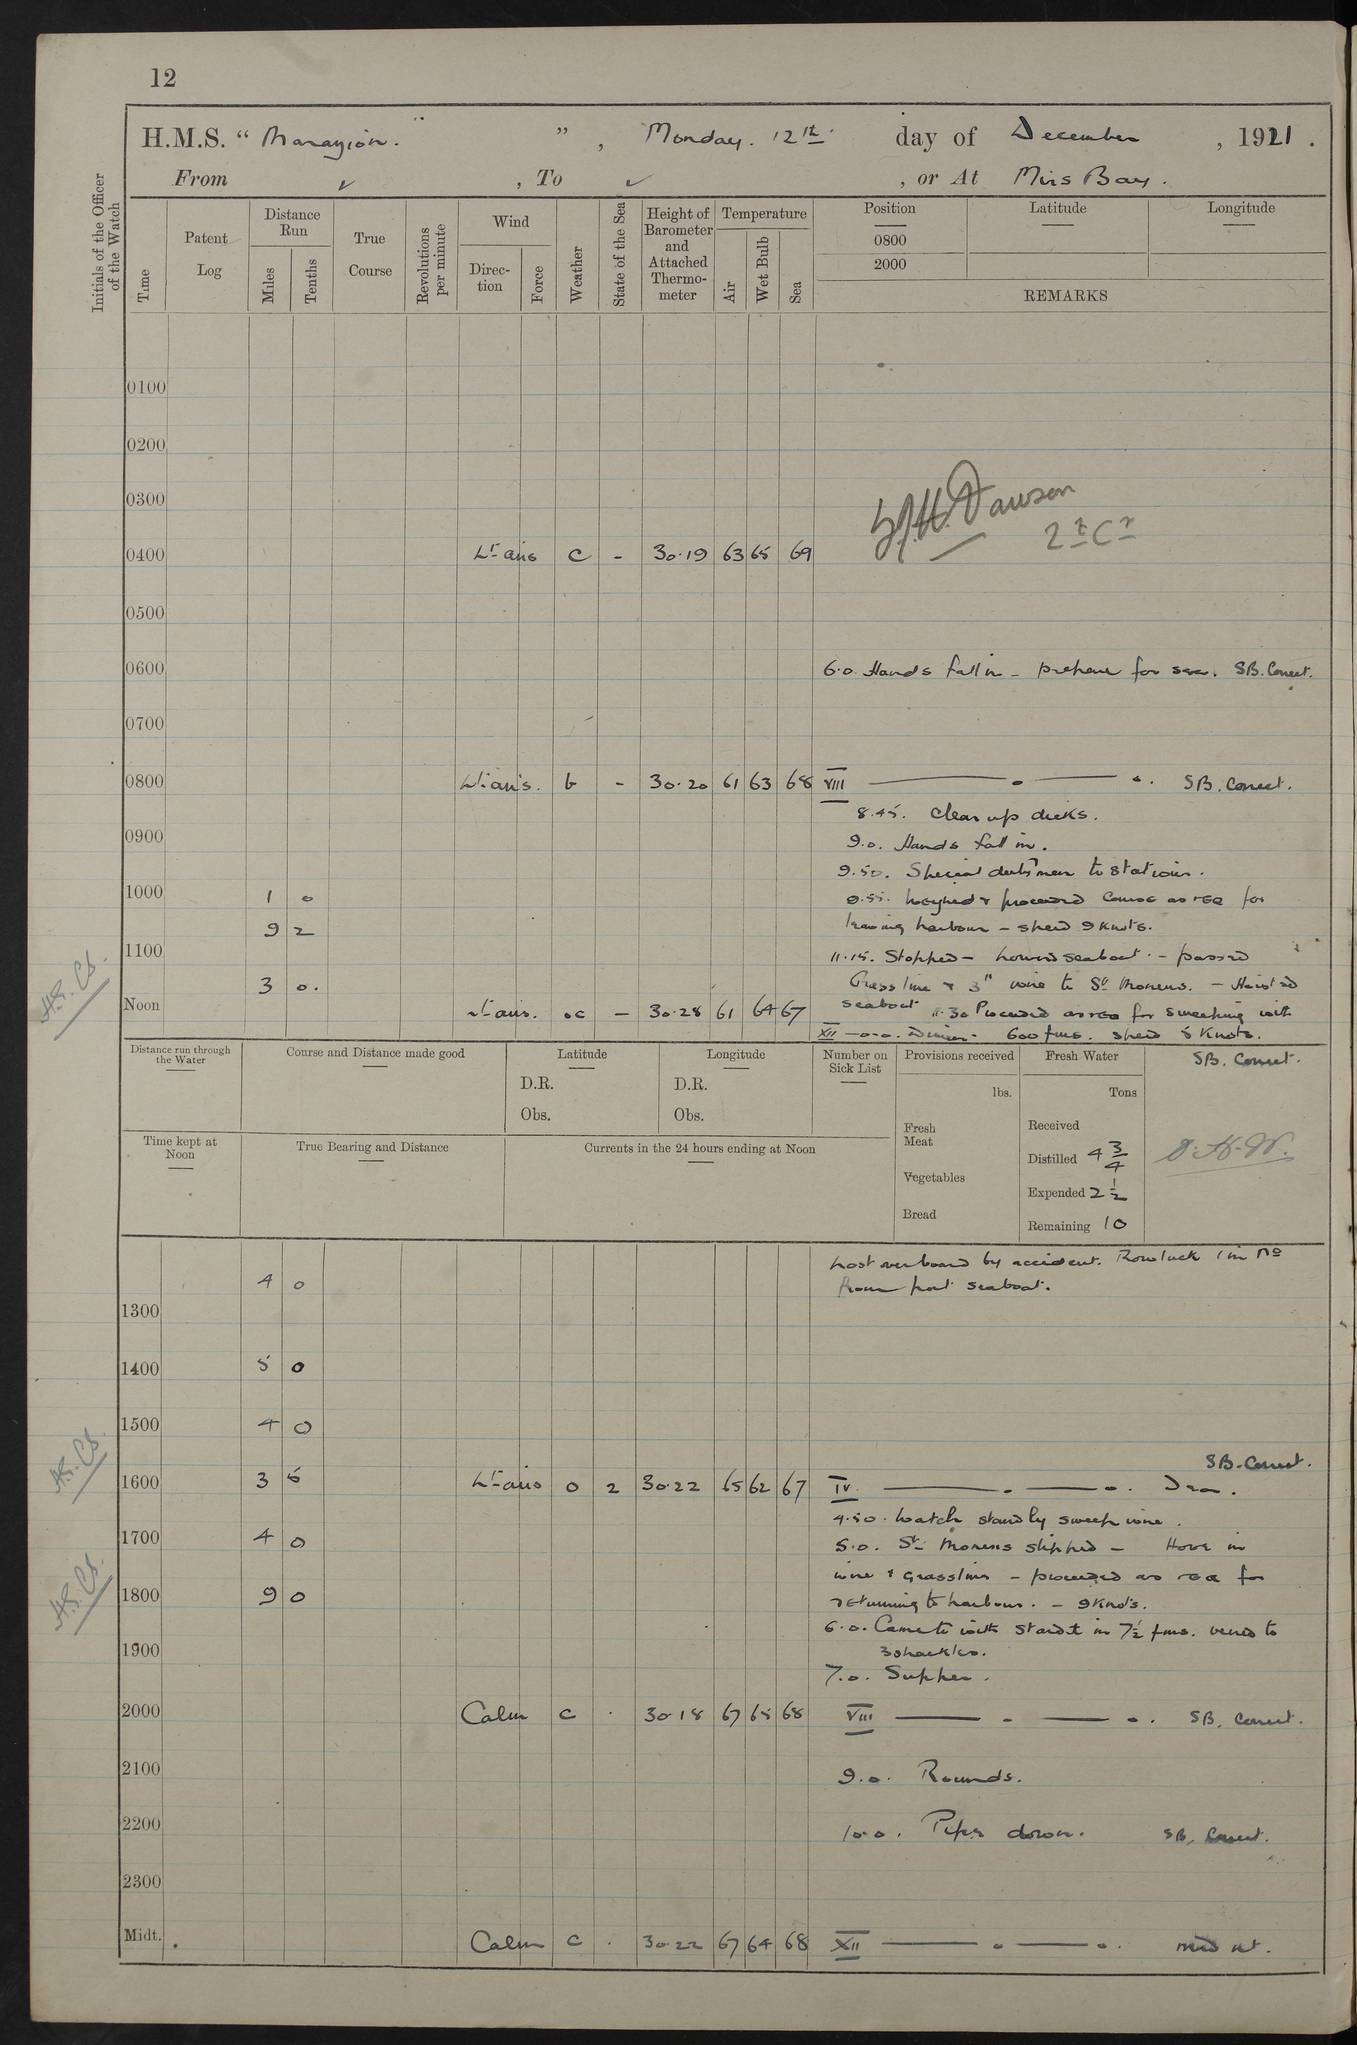 12
H.M.S. " Marazion. " , Monday. 12th day of December , 1921 .
From ✓ , To ✓ , or At Mirs Bay .
Initials of the Officer of the Watch
Time
Patent Log
Distance Run
Miles
Tenths
True Course
Revolutions per minute
Wind
Direc-tion
Force
Weather
State of the Sea
Height of Barometer and Attached Thermo-meter
Temperature
Air
Wet Bulb
Sea
Position
0800
2000
Latitude
Longitude
REMARKS
0100
0200
0300
Dawson
0400 Lt airs c - 30.19 63 65 69
0500
0600 6.0. Hands fall in - prepare for sea. SB. Correct.
0700
0800 Lt airs. b - 30.20 61 63 68 VIII — o — o. SB. Correct.
8.45. Clear up decks.
0900 9.0. Hands fall in.
9.50. Special duty men to stations.
1000 1 0 9.55. Weighed & proceeded Course as req for
9 2 leaving harbour - speed 9 Knots.
1100 11.15. Stopped - lowered seaboat. - passed
3 0. Grass line & 3" wire to St Monans. - Hoisted
Noon Lt airs. oc - 30.28 61 64 67 seaboat 11.30 Proceeded as req for sweeping with
XII -o-o-. Dinner. 600 fms. speed 5 Knots.
Distance run through the Water
Course and Distance made good
Latitude
D.R.
Obs.
Longitude
D.R.
Obs.
Number on Sick List
Provisions received
lbs.
Fresh Meat
Vegetables
Bread
Fresh Water
Tons
Received
Distilled 4 3/4
Expended 2 1/2
Remaining 10
SB. Correct.
Time kept at Noon
True Bearing and Distance
Currents in the 24 hours ending at Noon
Lost overboard by accident. Rowlock 1 in No
4 0 from port seaboat.
1300
1400 5 0
1500 4 0
SB. Correct.
1600 3 5 Lt airs o 2 30.22 65 62 67 IV. — o — o.
4.50. Watch stand by sweep wire.
1700 4 0 5.0. St Monans slipped - Hove in
wire & grassline - proceeded as req for
1800 9 0 returning to harbour. - 9 Knots.
6.0. Came to with Starbd in 7½ fms. veered to
1900 3 shackles.
7.0. Supper.
2000 Calm c . 30.18 67 65 68 VIII — o — o. SB. Correct.
2100 9.0. Rounds.
2200 10.0. Pipe down. SB. Correct.
2300
Midt. Calm c . 30.22 67 64 68 XII — o — o.